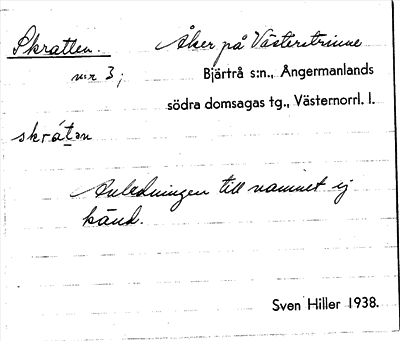 Skratten. Åker på Västerstrinne
nr 3; Bjärtrå s:n., Ångermanlands
södra domsagas tg., Västernorrl. l.
skrátən
Anledningen till namnet ej
känd.
Sven Hiller 1938.